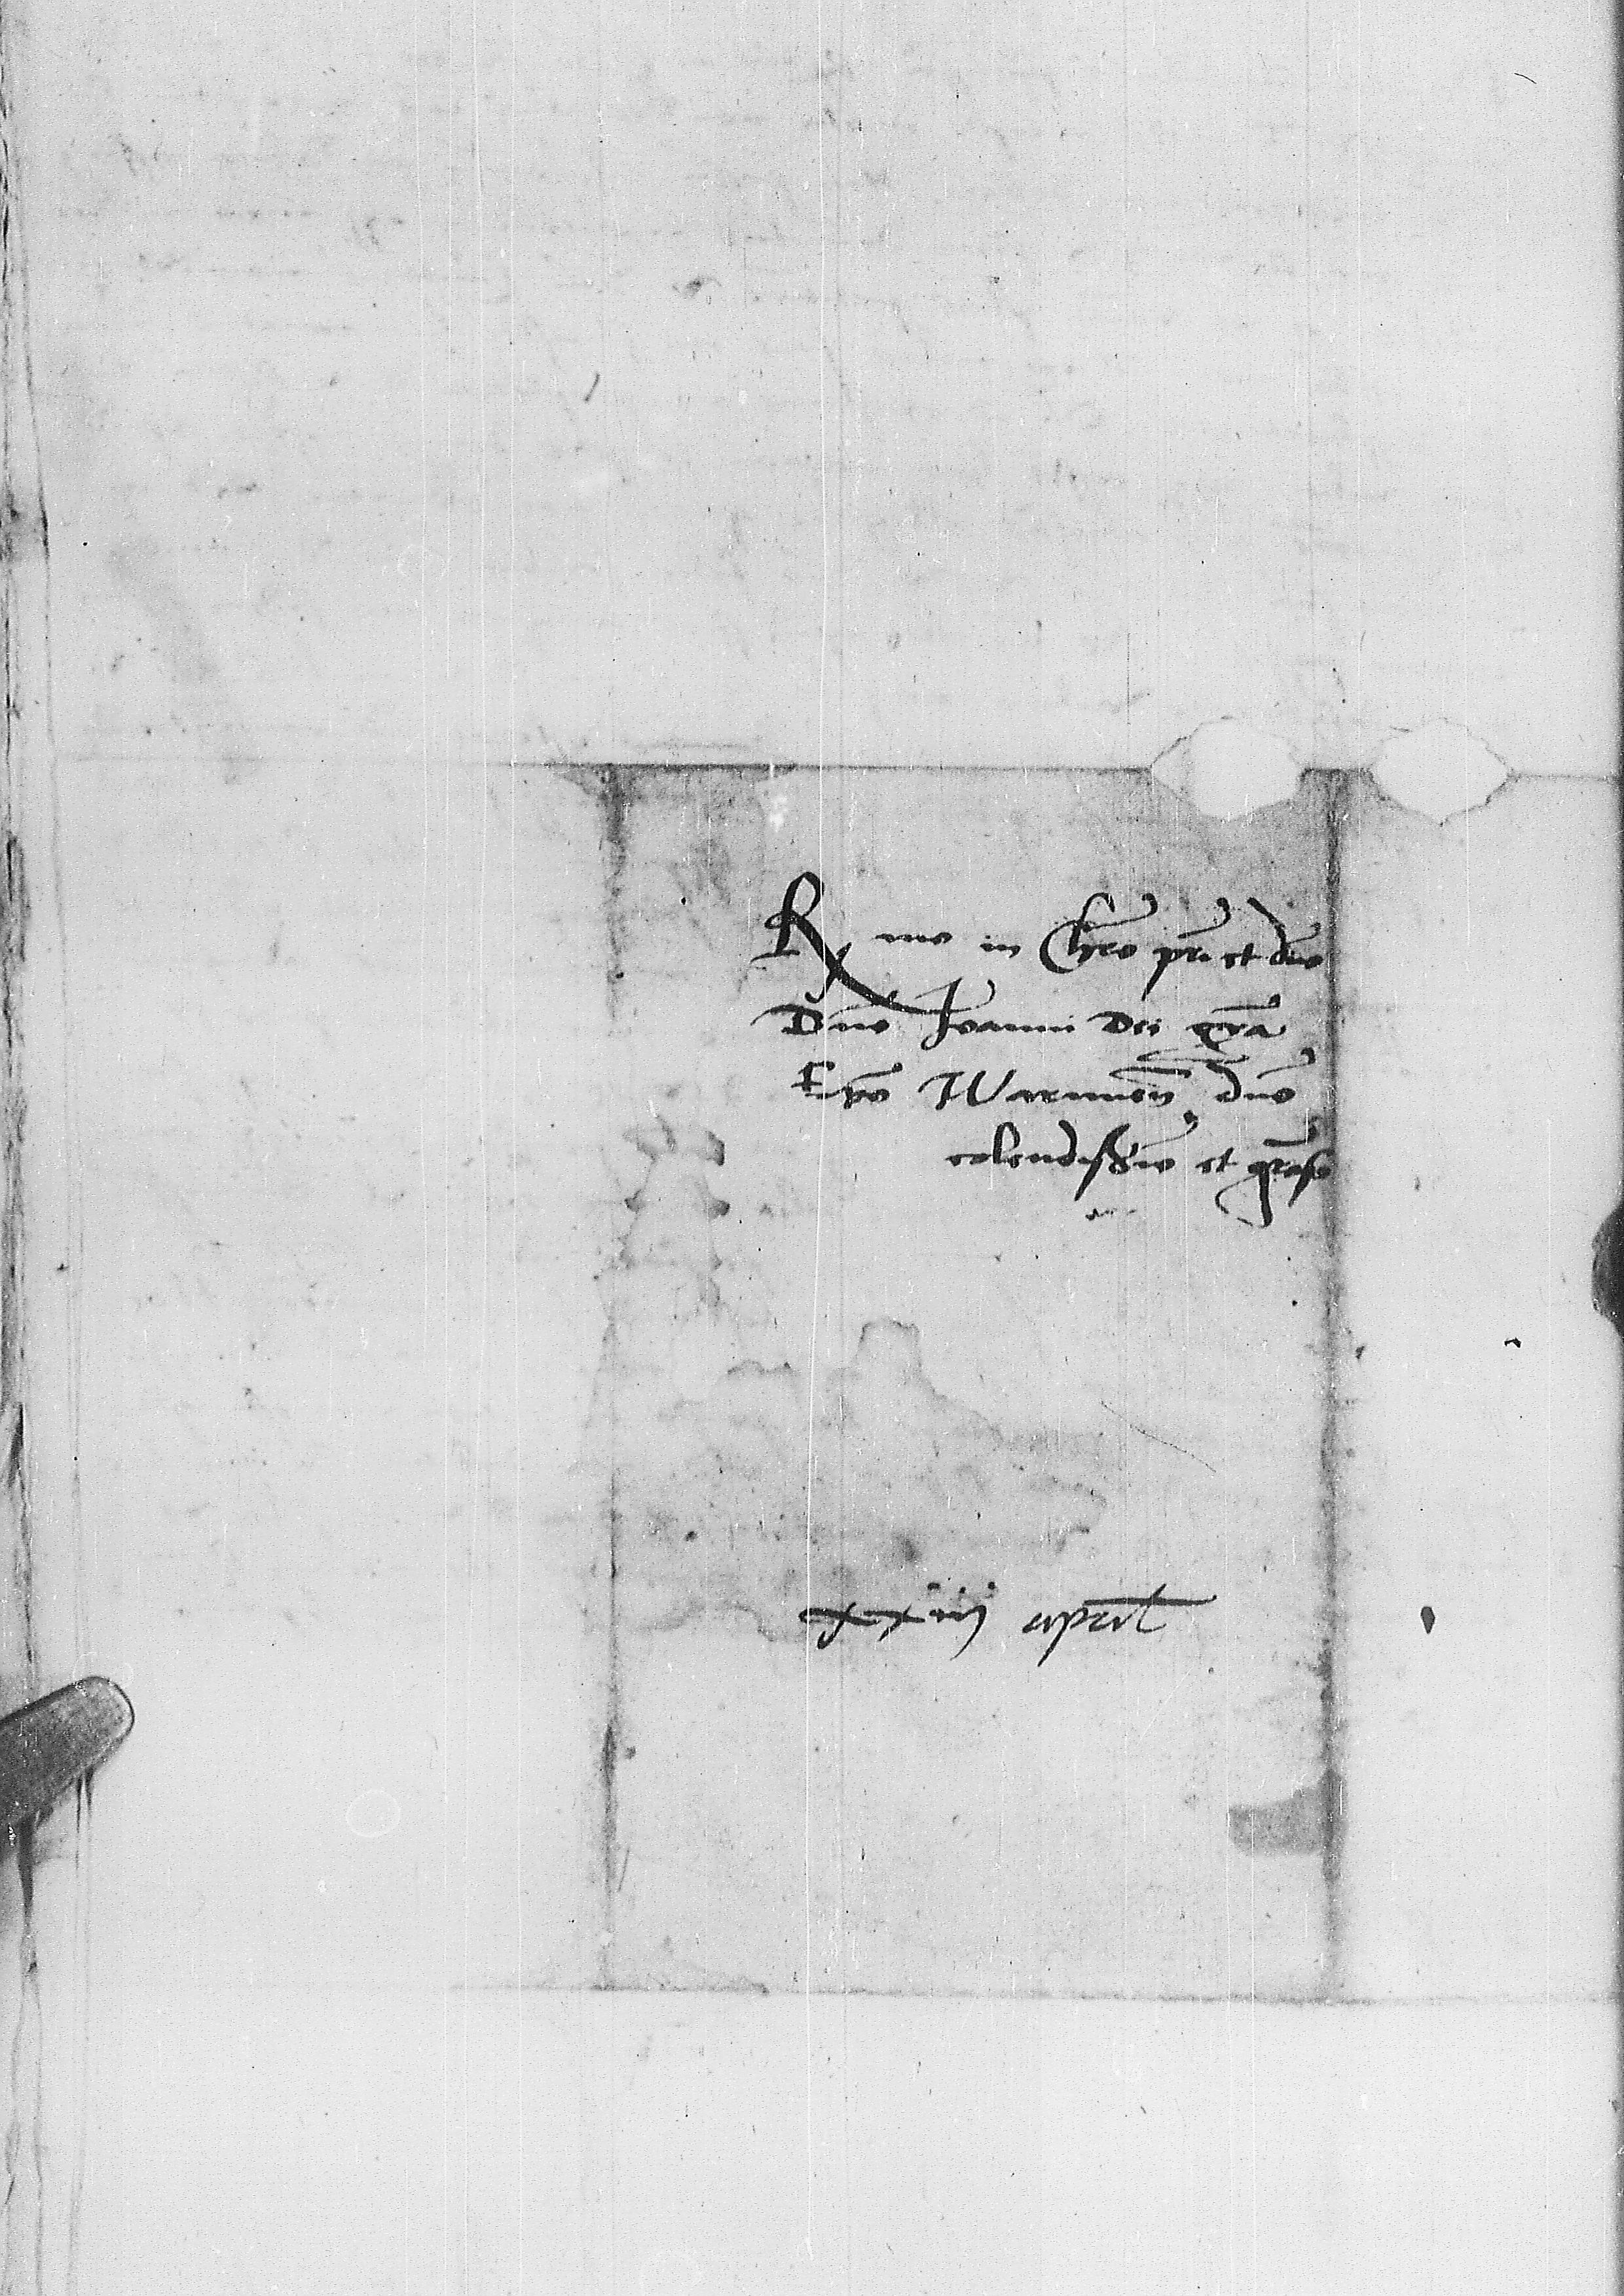 R mo in Chro pri et dno
Dno Joanni Dei gra
Epo Warmien dno
colendissimo et graso
xxiij april